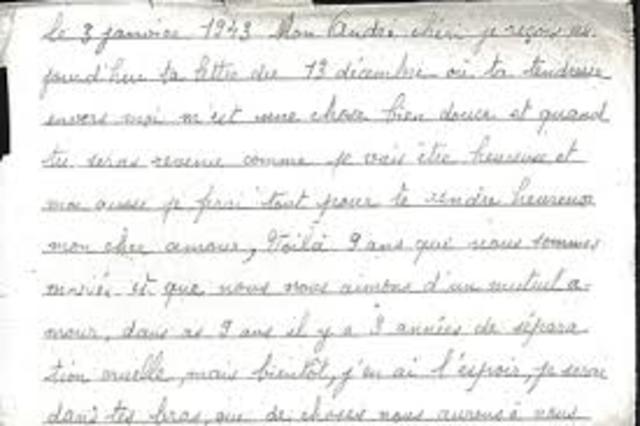 le 3 janvier 1943 Mon André chéri je reçois au
jourd'hui ta lettre du 13 décembre où ta tendresse
envers moi m'est une chose bien douce et quand
tu seras revenu comme je vais être heureuse et
moi aussi je ferai tout pour te rendre heureux
mon cher amour, Voilà 9 ans que nous sommes
mariés et que nous nous aimons d'un mutuel a-
mour, dans ces 9 ans il y a 3 années de sépara
tion cruelle, mais bientôt, j'en ai l'espoir, je serai
dans tes bras, que de choses nous aurons à nous